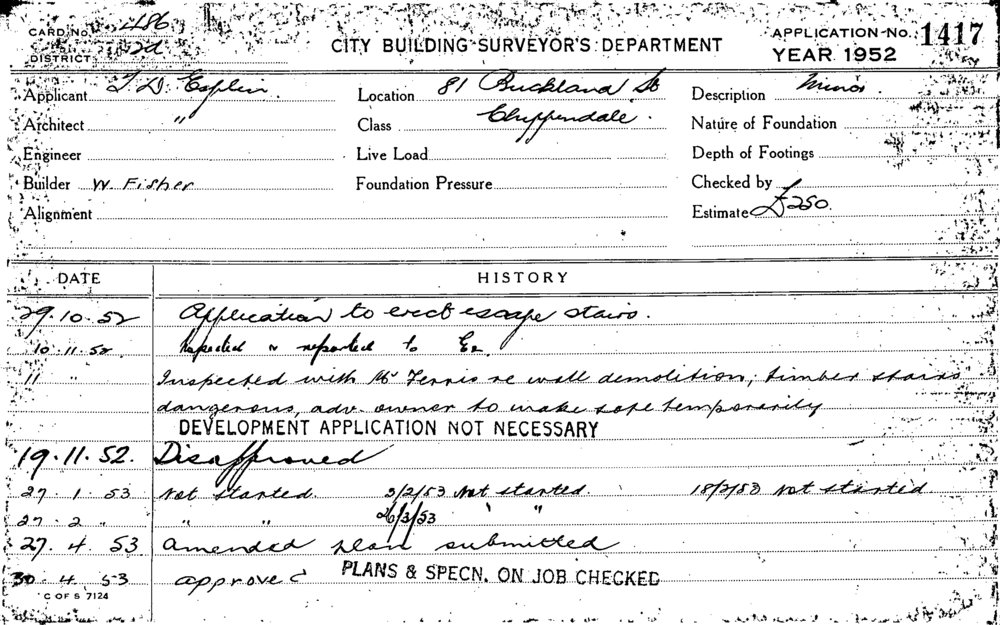 CARD No. 1486
DISTRICT 2d
CITY BUILDING SURVEYOR'S DEPARTMENT
APPLICATION No. 1417
YEAR 1952
Applicant T. D. Esplin
Location 81 Buckland St
Description Minor.
Architect "
Class Chippendale.
Nature of Foundation
Engineer
Live Load
Depth of Footings
Builder W. Fisher
Foundation Pressure
Checked by
Alignment
Estimate £250.
DATE HISTORY
29.10.52 Application to erect escape stairs.
10.11.52 Inspected & reported to
11 " Inspected with Mr Ferris re wall demolition; timber stairs
dangerous, adv. owner to make safe temporarily
DEVELOPMENT APPLICATION NOT NECESSARY
19.11.52. Disapproved
27.1.53 Not started. 3/2/53 Not started. 18/2/53 Not started
27.2 " " " 26/3/53 " "
27.4.53 Amended plan submitted
30.4.53 approved PLANS & SPECN. ON JOB CHECKED
C OF S 7124